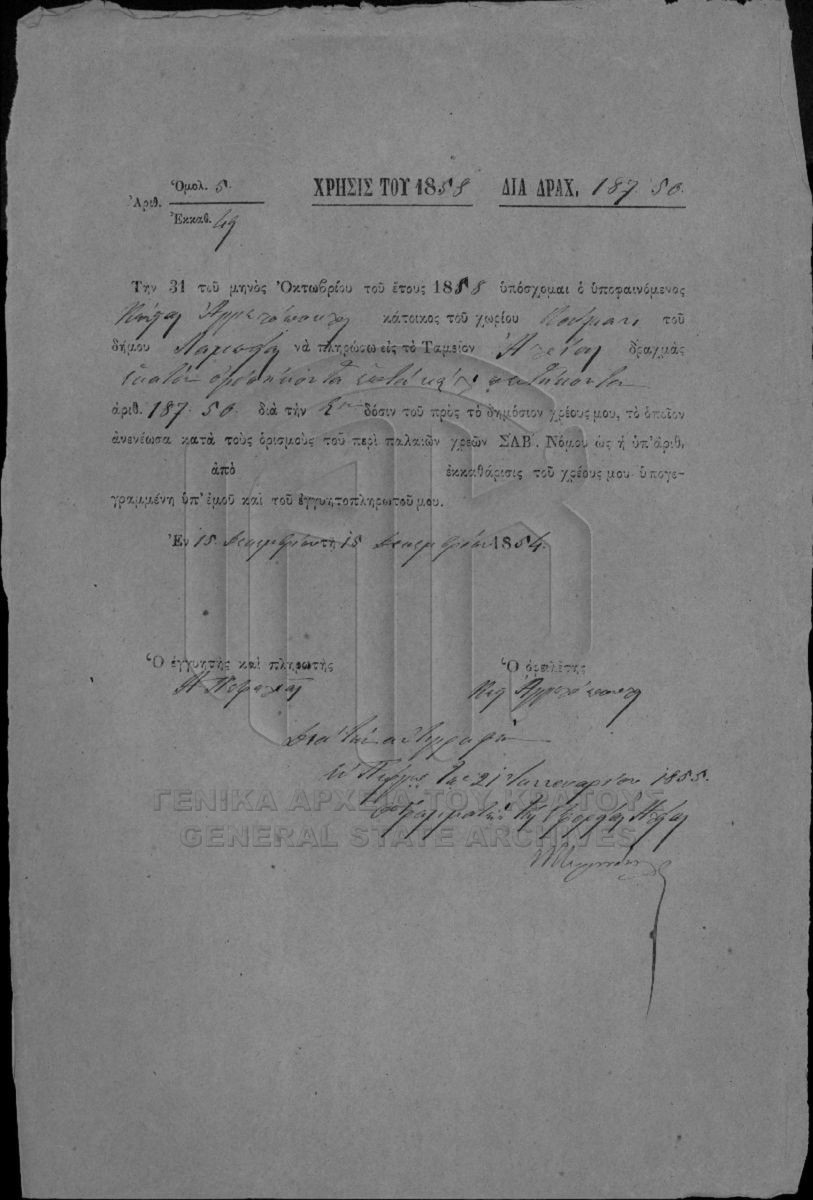 Ὁμολ. 5. ΧΡΗΣΙΣ ΤΟΥ 1858 ΔΙΑ ΔΡΑΧ. 187. 50.
Ἀριθ.
Ἐκκαθ. 49
Την 31 τοῦ μηνὸς Ὀκτωβρίου τοῦ ἔτους 1858 ὑπόσχομαι ὁ ὑποφαινόμενος
κάτοικος τοῦ χωρίου Κούμανι τοῦ
δήμου Λαμπείας νὰ πληρώσω εἰς τὸ Ταμεῖον Ἠλείας δραχμὰς
ἑκατὸν ὀγδοήκοντα ἑπτὰ καὶ πεντήκοντα
ἀριθ. 187. 50. διὰ τὴν δόσιν τοῦ πρὸς τὸ δημόσιον χρέους μου, τὸ ὁποῖον
ἀνενέωσα κατὰ τοὺς ὁρισμοὺς τοῦ περὶ παλαιῶν χρεῶν ΣΑΒʹ. Νόμου ὡς ἡ ὑπ' ἀριθ.
ἀπὸ ἐκκαθάρισις τοῦ χρέους μου ὑπογε-
γραμμένη ὑπ' ἐμοῦ καὶ τοῦ ἐγγυητοπληρωτοῦ μου.
Ἐν 15 Δεκεμβρίου τῇ 15 Δεκεμβρίου 1854.
Ὁ ἐγγυητὴς καὶ πληρωτὴς Ὁ ὀφειλέτης
Διὰ τὴν ἀντιγραφὴν
Ἐν Πύργῳ τὴν 21 Ἰανουαρίου 1855.
Ὁ Γραμματεὺς τῆς Ἐφορίας Ἠλείας
ΓΕΝΙΚΑ ΑΡΧΕΙΑ ΤΟΥ ΚΡΑΤΟΥΣ
GENERAL STATE ARCHIVES